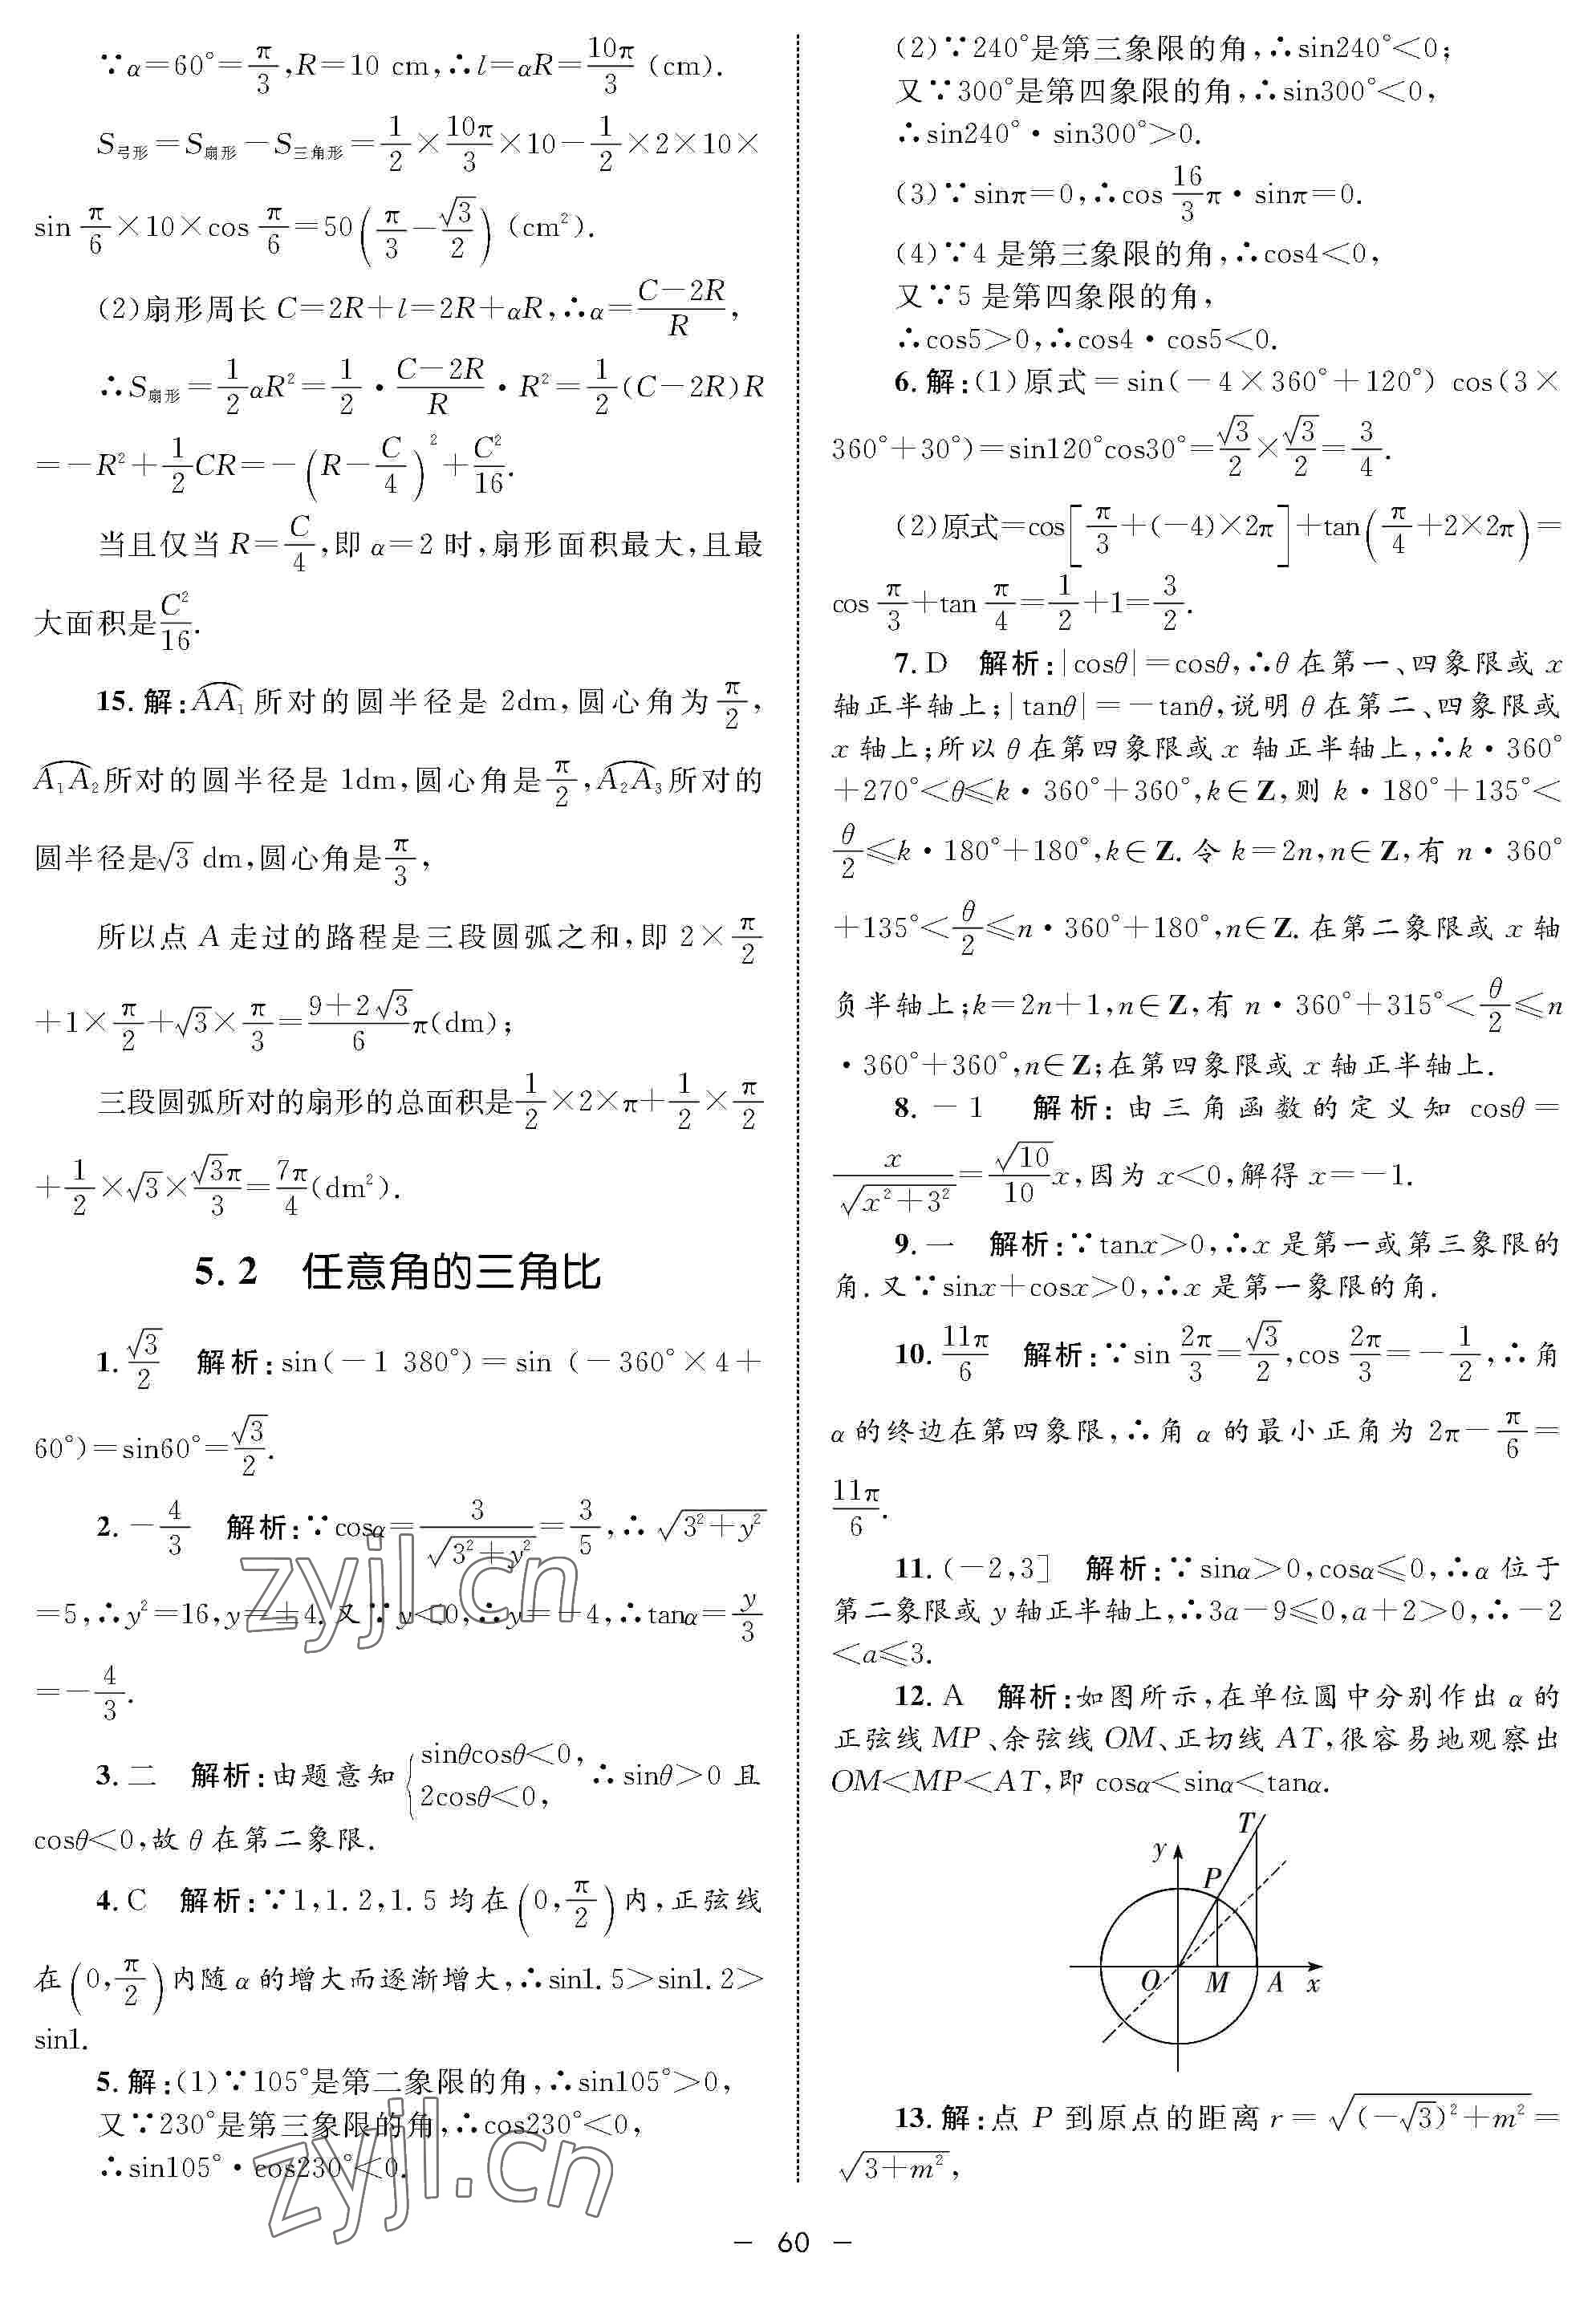 ∵α=60°=π/3,R=10 cm,∴l=αR=10π/3 (cm).
S弓形=S扇形-S三角形=1/2×10π/3×10-1/2×2×10×
sin π/6×10×cos π/6=50(π/3-√3/2) (cm²).
(2)扇形周长 C=2R+l=2R+αR,∴α=(C-2R)/R,
∴S扇形=1/2αR²=1/2·(C-2R)/R·R²=1/2(C-2R)R
=-R²+1/2CR=-(R-C/4)²+C²/16.
当且仅当 R=C/4,即 α=2 时,扇形面积最大,且最
大面积是C²/16.
15.解:⌒AA₁所对的圆半径是 2dm,圆心角为π/2,
⌒A₁A₂所对的圆半径是 1dm,圆心角是π/2,⌒A₂A₃所对的
圆半径是√3 dm,圆心角是π/3,
所以点 A 走过的路程是三段圆弧之和,即 2×π/2
+1×π/2+√3×π/3=(9+2√3)/6π(dm);
三段圆弧所对的扇形的总面积是1/2×2×π+1/2×π/2
+1/2×√3×√3π/3=7π/4(dm²).
5.2 任意角的三角比
1.√3/2 解析:sin(-1 380°)=sin (-360°×4+
60°)=sin60°=√3/2.
2.-4/3 解析:∵cosα=3/√(3²+y²)=3/5,∴√(3²+y²)
=5,∴y²=16,y=±4.又∵y<0,∴y=-4,∴tanα=y/3
=-4/3.
3.二 解析:由题意知{sinθcosθ<0, 2cosθ<0, ∴sinθ>0 且
cosθ<0,故 θ 在第二象限.
4.C 解析:∵1,1.2,1.5 均在(0,π/2)内,正弦线
在(0,π/2)内随 α 的增大而逐渐增大,∴sin1.5>sin1.2>
sin1.
5.解:(1)∵105°是第二象限的角,∴sin105°>0,
又∵230°是第三象限的角,∴cos230°<0,
∴sin105°·cos230°<0.
(2)∵240°是第三象限的角,∴sin240°<0;
又∵300°是第四象限的角,∴sin300°<0,
∴sin240°·sin300°>0.
(3)∵sinπ=0,∴cos 16/3π·sinπ=0.
(4)∵4 是第三象限的角,∴cos4<0,
又∵5 是第四象限的角,
∴cos5>0,∴cos4·cos5<0.
6.解:(1)原式=sin(-4×360°+120°) cos(3×
360°+30°)=sin120°cos30°=√3/2×√3/2=3/4.
(2)原式=cos[π/3+(-4)×2π]+tan(π/4+2×2π)=
cos π/3+tan π/4=1/2+1=3/2.
7.D 解析:|cosθ|=cosθ,∴θ 在第一、四象限或 x
轴正半轴上;|tanθ|=-tanθ,说明 θ 在第二、四象限或
x 轴上;所以 θ 在第四象限或 x 轴正半轴上,∴k·360°
+270°<θ≤k·360°+360°,k∈Z,则 k·180°+135°<
θ/2≤k·180°+180°,k∈Z.令 k=2n,n∈Z,有 n·360°
+135°<θ/2≤n·360°+180°,n∈Z.在第二象限或 x 轴
负半轴上;k=2n+1,n∈Z,有 n·360°+315°<θ/2≤n
·360°+360°,n∈Z;在第四象限或 x 轴正半轴上.
8.-1 解析:由三角函数的定义知 cosθ=
x/√(x²+3²)=√10/10x,因为 x<0,解得 x=-1.
9.一 解析:∵tanx>0,∴x 是第一或第三象限的
角.又∵sinx+cosx>0,∴x 是第一象限的角.
10.11π/6 解析:∵sin 2π/3=√3/2,cos 2π/3=-1/2,∴角
α 的终边在第四象限,∴角 α 的最小正角为 2π-π/6=
11π/6.
11.(-2,3] 解析:∵sinα>0,cosα≤0,∴α 位于
第二象限或 y 轴正半轴上,∴3a-9≤0,a+2>0,∴-2
<a≤3.
12.A 解析:如图所示,在单位圆中分别作出 α 的
正弦线 MP、余弦线 OM、正切线 AT,很容易地观察出
OM<MP<AT,即 cosα<sinα<tanα.
T
y
P
O M A x
13.解:点 P 到原点的距离 r=√((-√3)²+m²)=
√(3+m²),
zyjl.cn
zyjl.cn
- 60 -